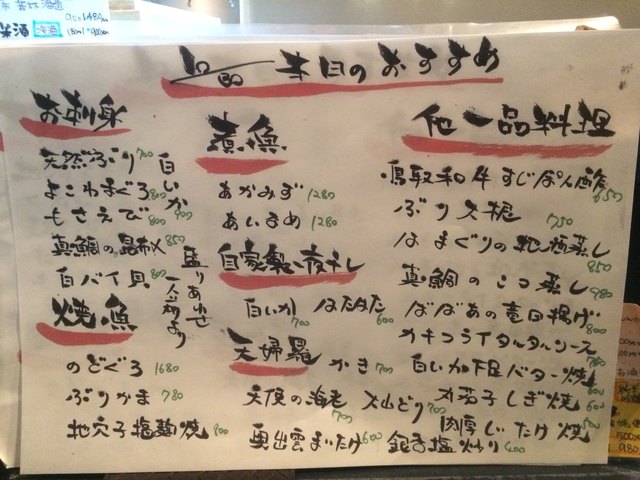 10/30 本日のおすすめ
お刺身
天然ぶり 700
よこわまぐろ 800
もさえび 800
真鯛の昆布〆 850
白バイ貝 800
白いか 900
盛りあわせ
一人前より
焼魚
のどぐろ 1680
ぶりかま 780
地穴子塩麹焼 800
煮魚
あかみず 1280
あいなめ 1280
自家製一夜干し
白いか 700
はたはた 600
天婦羅
かき 700
天使の海老 700
大山どり 700
奥出雲まいたけ 600
他一品料理
鳥取和牛すじぽん酢 650
ぶり大根 750
はまぐりの地酒蒸し 850
真鯛のこつ蒸し 980
ばばあの唐揚げ 800
カキフライタルタルソース
白いか下足バター焼
丸茄子しぎ焼 600
肉厚しいたけ焼 500
銀杏塩炒り 400